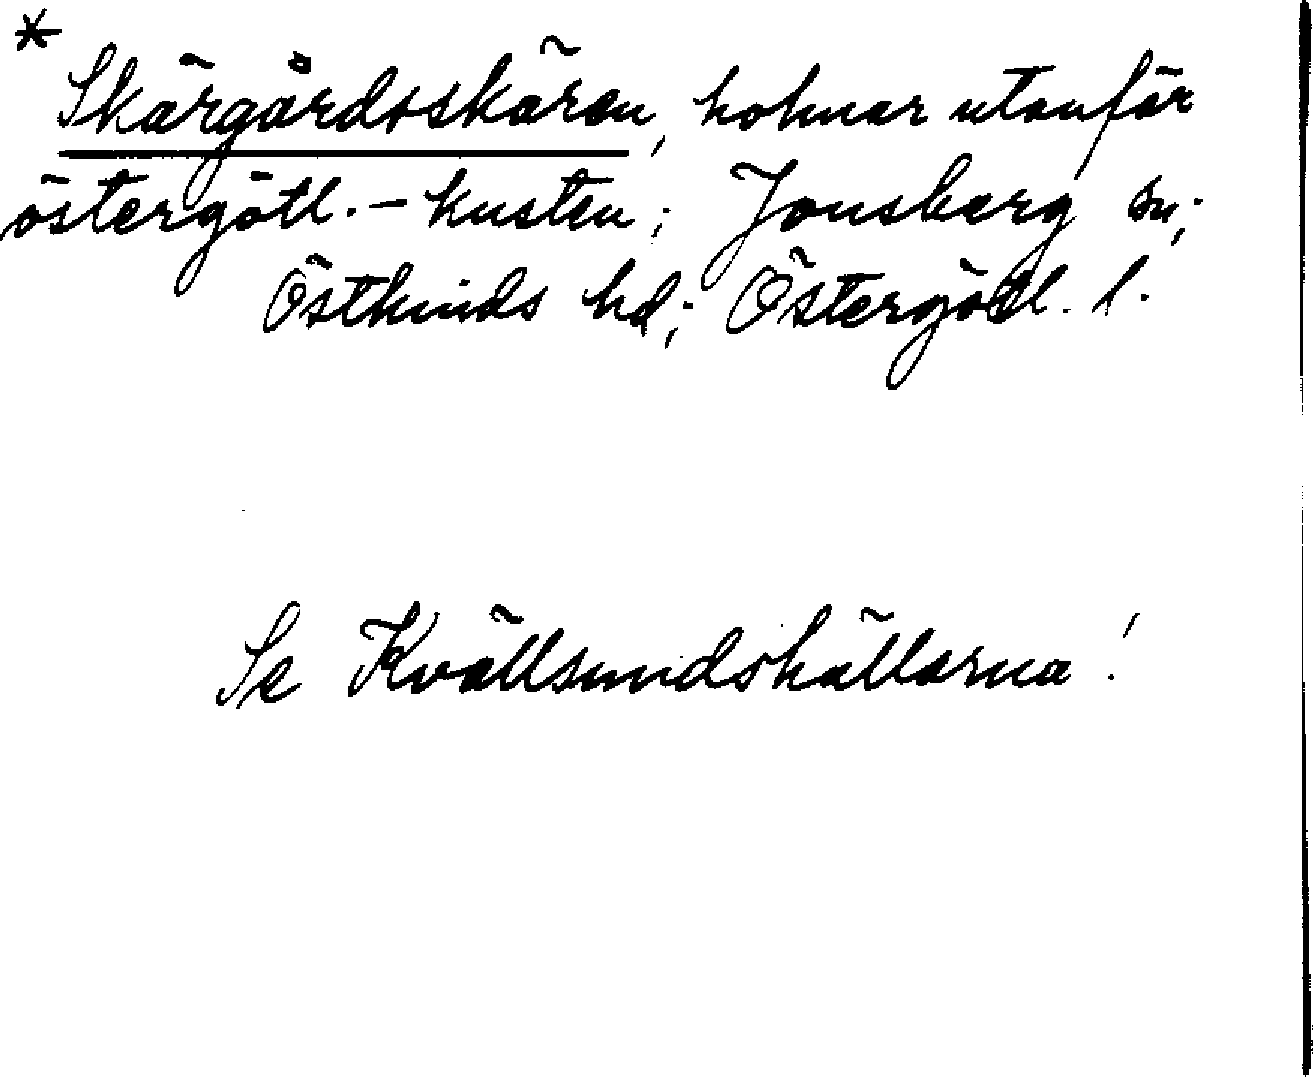 * Skärgårdsskären, holmar utanför
östergötl. - kusten; Jonsberg sn;
Östkinds hd; Östergötl. l.
Se Kvällsundshällarna!